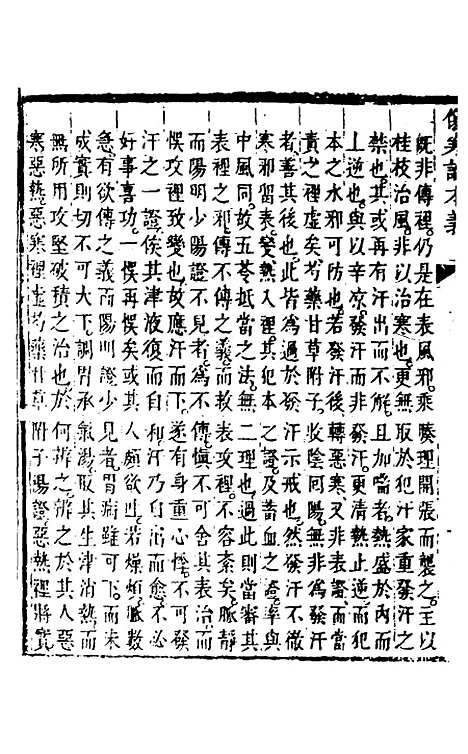 傷寒論本義
既非傳裡仍是在表風邪乘腠理開張而襲之主以
桂枝治風非以治寒也更無取於犯汗家重發汗之
禁也其或再有汗出而不解且加喘者熱盛於內而
上逆也與以辛涼發汗而非發汗更清熱止逆而犯
本之水邪可防也若發汗後轉惡寒又非表證而當
責之裡虛矣芍藥甘草附子收陰回陽無非為發汗
者善其後也此皆為過於發汗示戒也然發汗不徹
寒邪留表變熱入裡其犯本之證及蓄血之證率與
中風同故五苓抵當之法無二理也過此則當審其
表裡之邪傳不傳之義而救表攻裡不容紊矣脈靜
而陽明少陽證不見者為不傳慎不可舍其表治而
悞攻裡致變也故應汗而下遂有身重心悸不可發
汗之一證俟其津液復而自和汗乃自滴而愈不必
好事喜功一悞再悞矣或其人頗欲吐若燥煩脈數
急有欲傳之義而陽明證少見者胃病雖可下而未
成實則切不可大下調胃承氣湯取其生津消熱而
無所用攻堅破積之治也於何辨之辨之於其人惡
寒惡熱惡寒裡虛芍藥甘草附子湯證惡熱裡將實